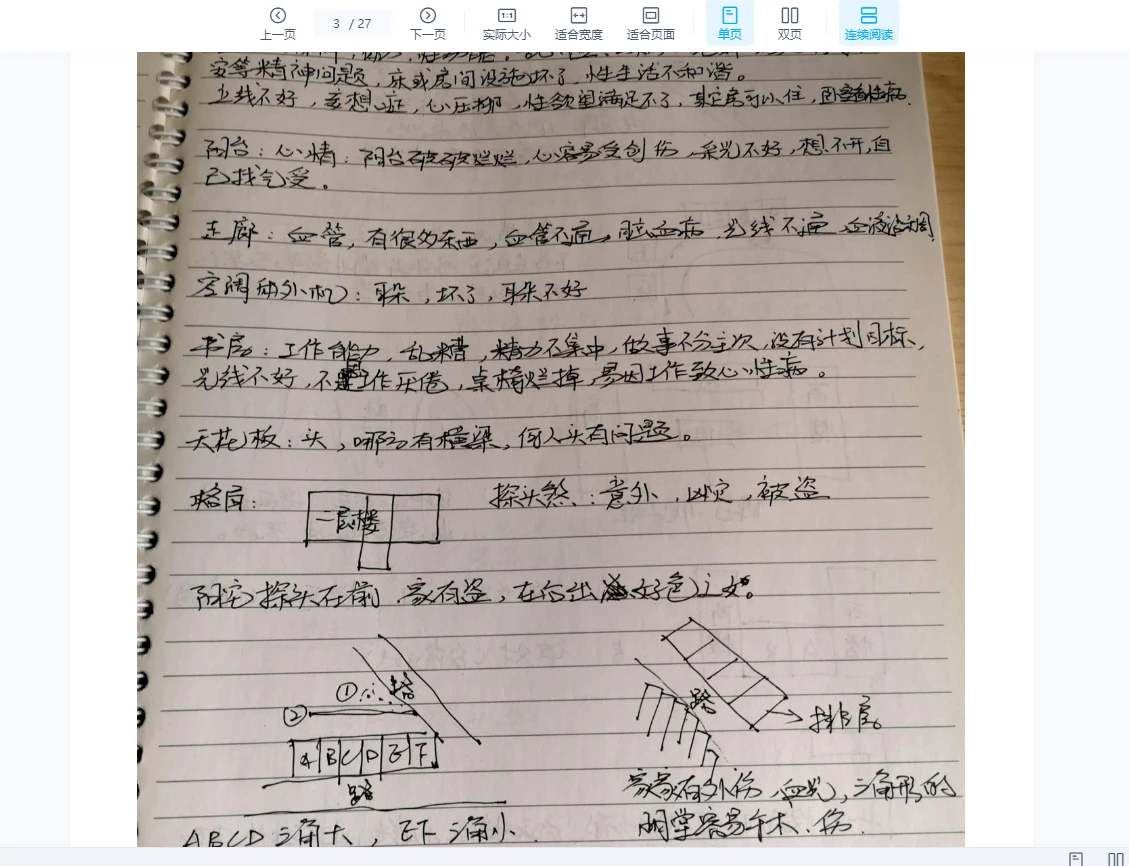 上一页
3 / 27
下一页
1:1
实际大小
适合宽度
适合页面
单页
双页
连续阅读
安等精神问题，床或房间设施坏了，性生活不和谐。
光线不好，妄想症，心压抑，性欲望满足不了，其它房可以住，
阳台：心情：阳台破破烂烂，心容易受创伤，采光不好，想不开，自
己找气受。
走廊：血管，有很多东西，血管不通，脑血病，光线不通，血液
空调的外机：耳朵，坏了，耳朵不好
书房：工作能力，乱糟，精力不集中，做事不分主次，没有计划目标，
光线不好，不 工作厌倦，桌椅烂掉，易因工作致心性病。
天花板：头，哪方有横梁，何人头有问题。
二层楼
探头煞：意外，凶灾，被盗
阳宅探头在前，家有盗，在后出好色之女。
①
路
②
A B C D E F
路
路
排房
家家有外伤，血光，三角形的
ABCD三角大，EF三角小
明堂容易 伤